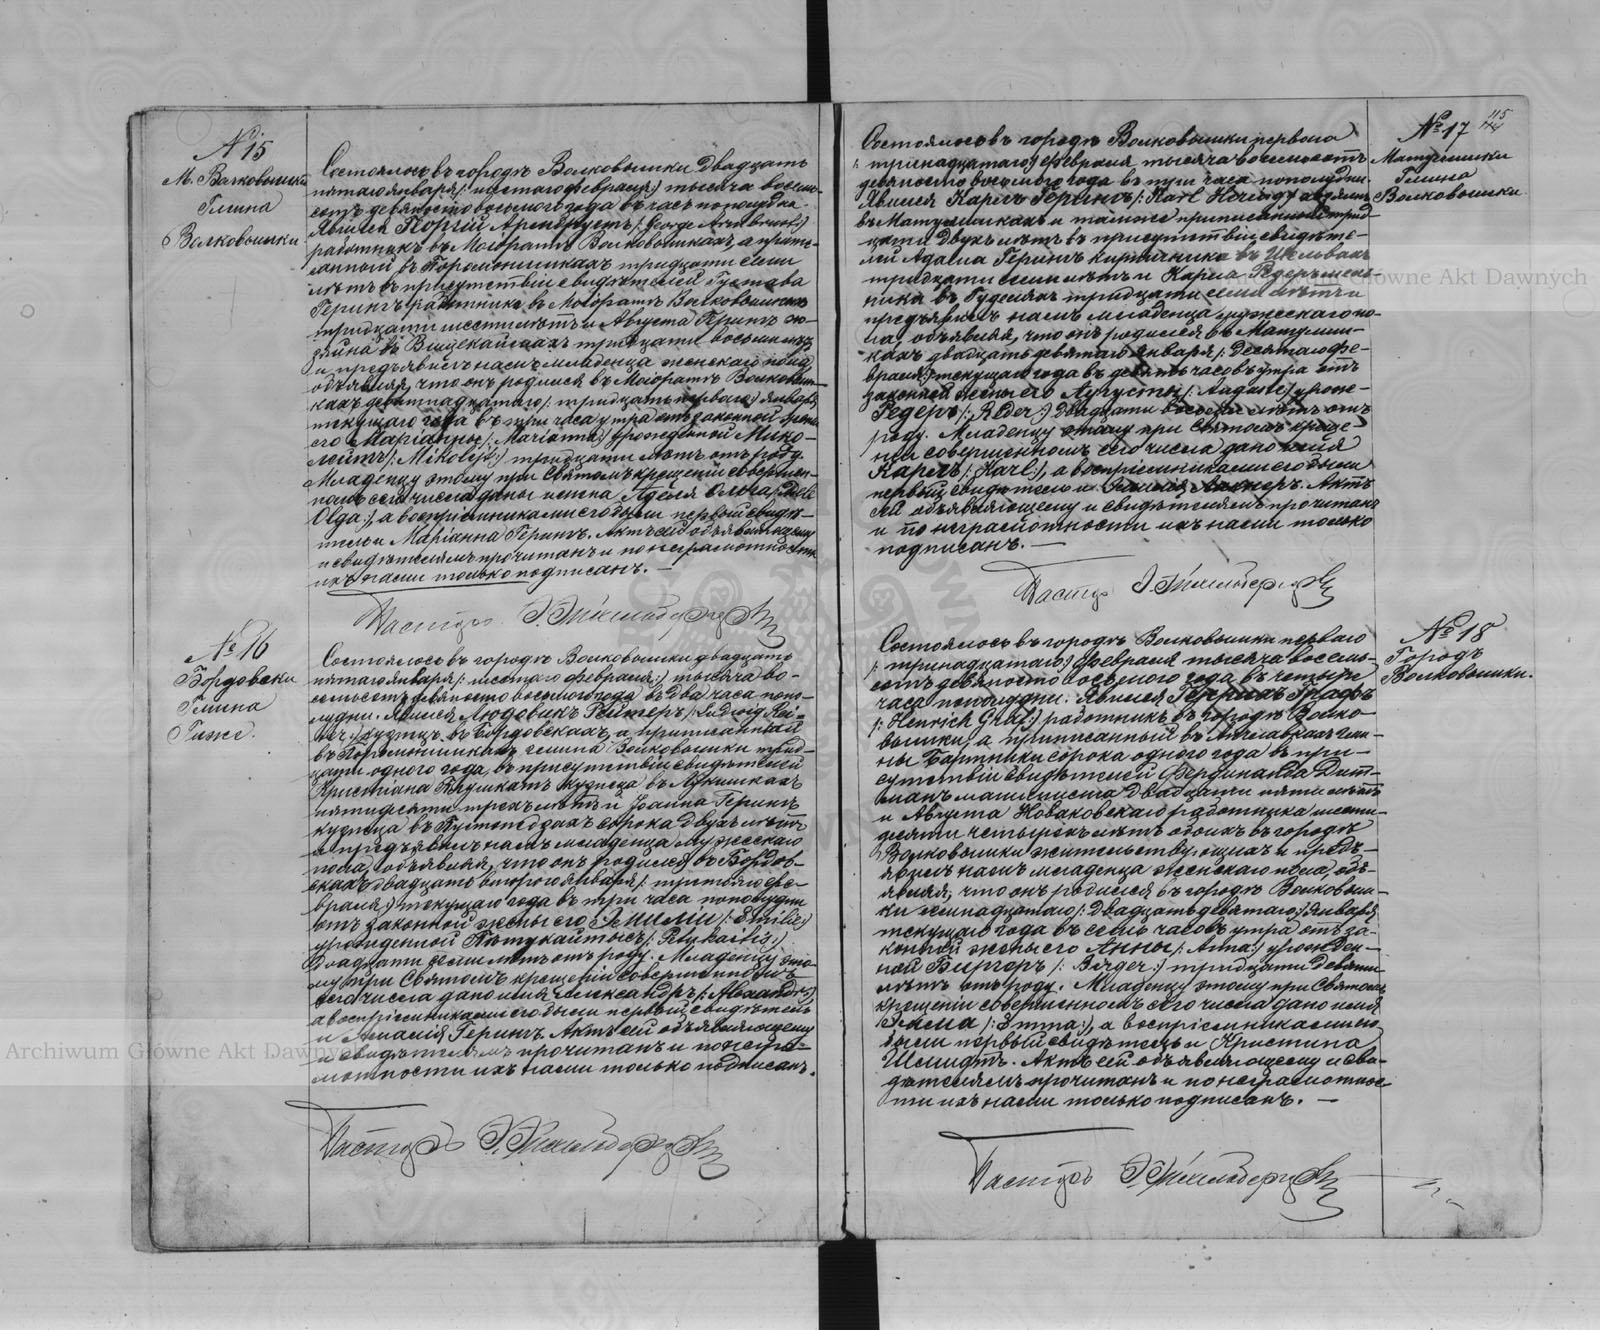 № 15
М. Волковышки
Гмина
Волковышки
Состоялось въ городѣ Волковышки двадцать
пятаго января /: шестаго февраля :/ тысяча восемь-
сотъ девяносто восьмого года въ часъ пополудни.
Явился Георгій Армбрустъ /: George Armbrust :/
работникъ въ Маіоратѣ Волковышкахъ, а припи-
санный въ тридцати семи
лѣтъ въ присутствіи свидѣтелей Густава
Герингъ работника въ Маіоратѣ Волковышкахъ
тридцати шести лѣтъ и Августа Герингъ хо-
зяина въ тридцати восьми лѣтъ
и предъявилъ намъ младенца женскаго пола,
объявляя, что онъ родился въ Маіоратѣ Волковыш-
кахъ девятнадцатаго /: тридцать перваго :/ января
текущаго года въ три часа утра отъ законной жены
его Маріанны /: Marianna :/ урожденной Мико-
лойтъ /: :/ тридцати лѣтъ отъ роду.
Младенцу этому при Святомъ крещеніи совершен-
номъ сего числа даны имена Адель Ольга /: Adele
Olga :/, а воспріемниками его были первый свидѣ-
тель и Маріанна Герингъ. Актъ сей объявляющему
и свидѣтелямъ прочитанъ и по неграмотности
ихъ нами только подписанъ. —
Пасторъ
№ 16
Бордовски
Гмина
Гиже.
Состоялось въ городѣ Волковышки двадцать
пятаго января /: шестаго февраля :/ тысяча во-
семьсотъ девяносто восьмого года въ два часа попо-
лудни. Явился Людовикъ Рейтеръ /: Ludwig Rei-
ter :/ кузнецъ въ Бордовскахъ, а приписанный
въ гмины Волковышки трид-
цати одного года, въ присутствіи свидѣтелей
Христіана кузнеца въ
пятидесяти трехъ лѣтъ и Іоанна Герингъ
кузнеца въ сорока двухъ лѣтъ
и предъявилъ намъ младенца мужескаго
пола, объявляя, что онъ родился въ Бордов-
скахъ двадцать второго января /: третьяго фе-
враля :/ текущаго года въ три часа пополудни
отъ законной жены его Эмиліи /: Emilie :/
урожденной Петукайтысъ /: Petukaitis :/
двадцати семи лѣтъ отъ роду. Младенцу это-
му при Святомъ крещеніи совершенномъ
сего числа дано имя Александръ /: Alexander :/,
а воспріемниками его были первый свидѣтель
и Амалія Герингъ. Актъ сей объявляющему
и свидѣтелямъ прочитанъ и по негра-
мотности ихъ нами только подписанъ.
Пасторъ
115
№ 17
Матулишки
Гмина
Волковышки
Состоялось въ городѣ Волковышки перваго
/: тринадцатаго :/ февраля тысяча восемьсотъ
девяносто восьмого года въ три часа пополудни.
Явился Карлъ Герингъ /: Karl Hering :/
въ Матулишкахъ и тамже приписанный трид-
цати двухъ лѣтъ въ присутствіи свидѣте-
лей Адама Герингъ кирпичника въ
тридцати семи лѣтъ и Карла Редеръ
въ тридцати семи лѣтъ и
предъявилъ намъ младенца мужескаго по-
ла, объявляя, что онъ родился въ Матулиш-
кахъ двадцать девятаго января /: десятаго фе-
враля :/ текущаго года въ девять часовъ утра отъ
законной жены его Августы /: Auguste :/ урож-
Редеръ /: Reder :/ двадцати лѣтъ отъ
роду. Младенцу этому при Святомъ креще-
ніи совершенномъ сего числа дано имя
Карлъ /: Karl :/, а воспріемниками его были
первый свидѣтель и Актъ
сей объявляющему и свидѣтелямъ прочитанъ
и по неграмотности ихъ нами только
подписанъ. —
Пасторъ
№ 18
Городъ
Волковышки.
Состоялось въ городѣ Волковышки перваго
/: тринадцатаго :/ февраля тысяча восемь-
сотъ девяносто восьмого года въ четыре
часа пополудни. Явился Генрихъ Графъ
/: Henrich Graf :/ работникъ въ городѣ Волко-
вышки, а приписанный въ гми-
ны Бартники сорока одного года въ при-
сутствіи свидѣтелей Фердинанда Дит-
манъ машиниста двадцати пяти лѣтъ
и Августа Новаковскаго работника шести-
десяти четырехъ лѣтъ обоихъ въ городѣ
Волковышки жительствующихъ и предъ-
явилъ намъ младенца женскаго пола, объ-
являя, что онъ родился въ городѣ Волковыш-
ки семнадцатаго /: двадцать девятаго :/ января
текущаго года въ семь часовъ утра отъ за-
конной жены его Анны /: Anna :/ урожден-
ной Биргеръ /: Birger :/ тридцати девяти
лѣтъ отъ роду. Младенцу этому при Святомъ
крещеніи совершенномъ сего числа дано имя
Эмма /: Emma :/, а воспріемниками его
были первый свидѣтель и Кристина
Шмидтъ. Актъ сей объявляющему и сви-
дѣтелямъ прочитанъ и по неграмотнос-
ти ихъ нами только подписанъ. —
Пасторъ
Archiwum Główne Akt Dawnych
Główne Akt Dawnych